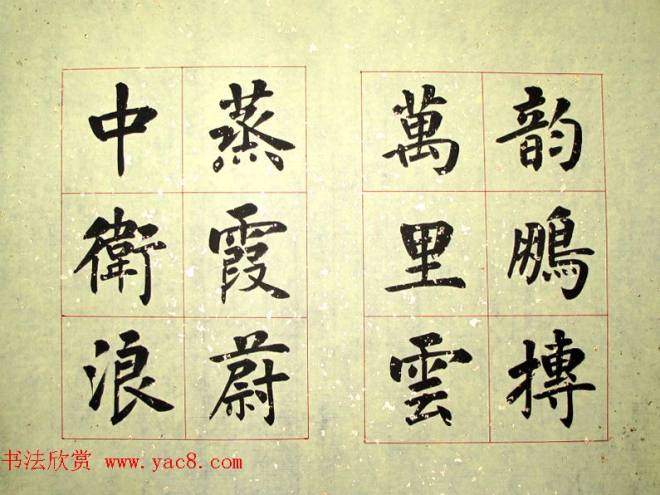 韵鵬搏
萬里雲
蒸霞蔚
中衛浪
书法欣赏 www.yac8.com